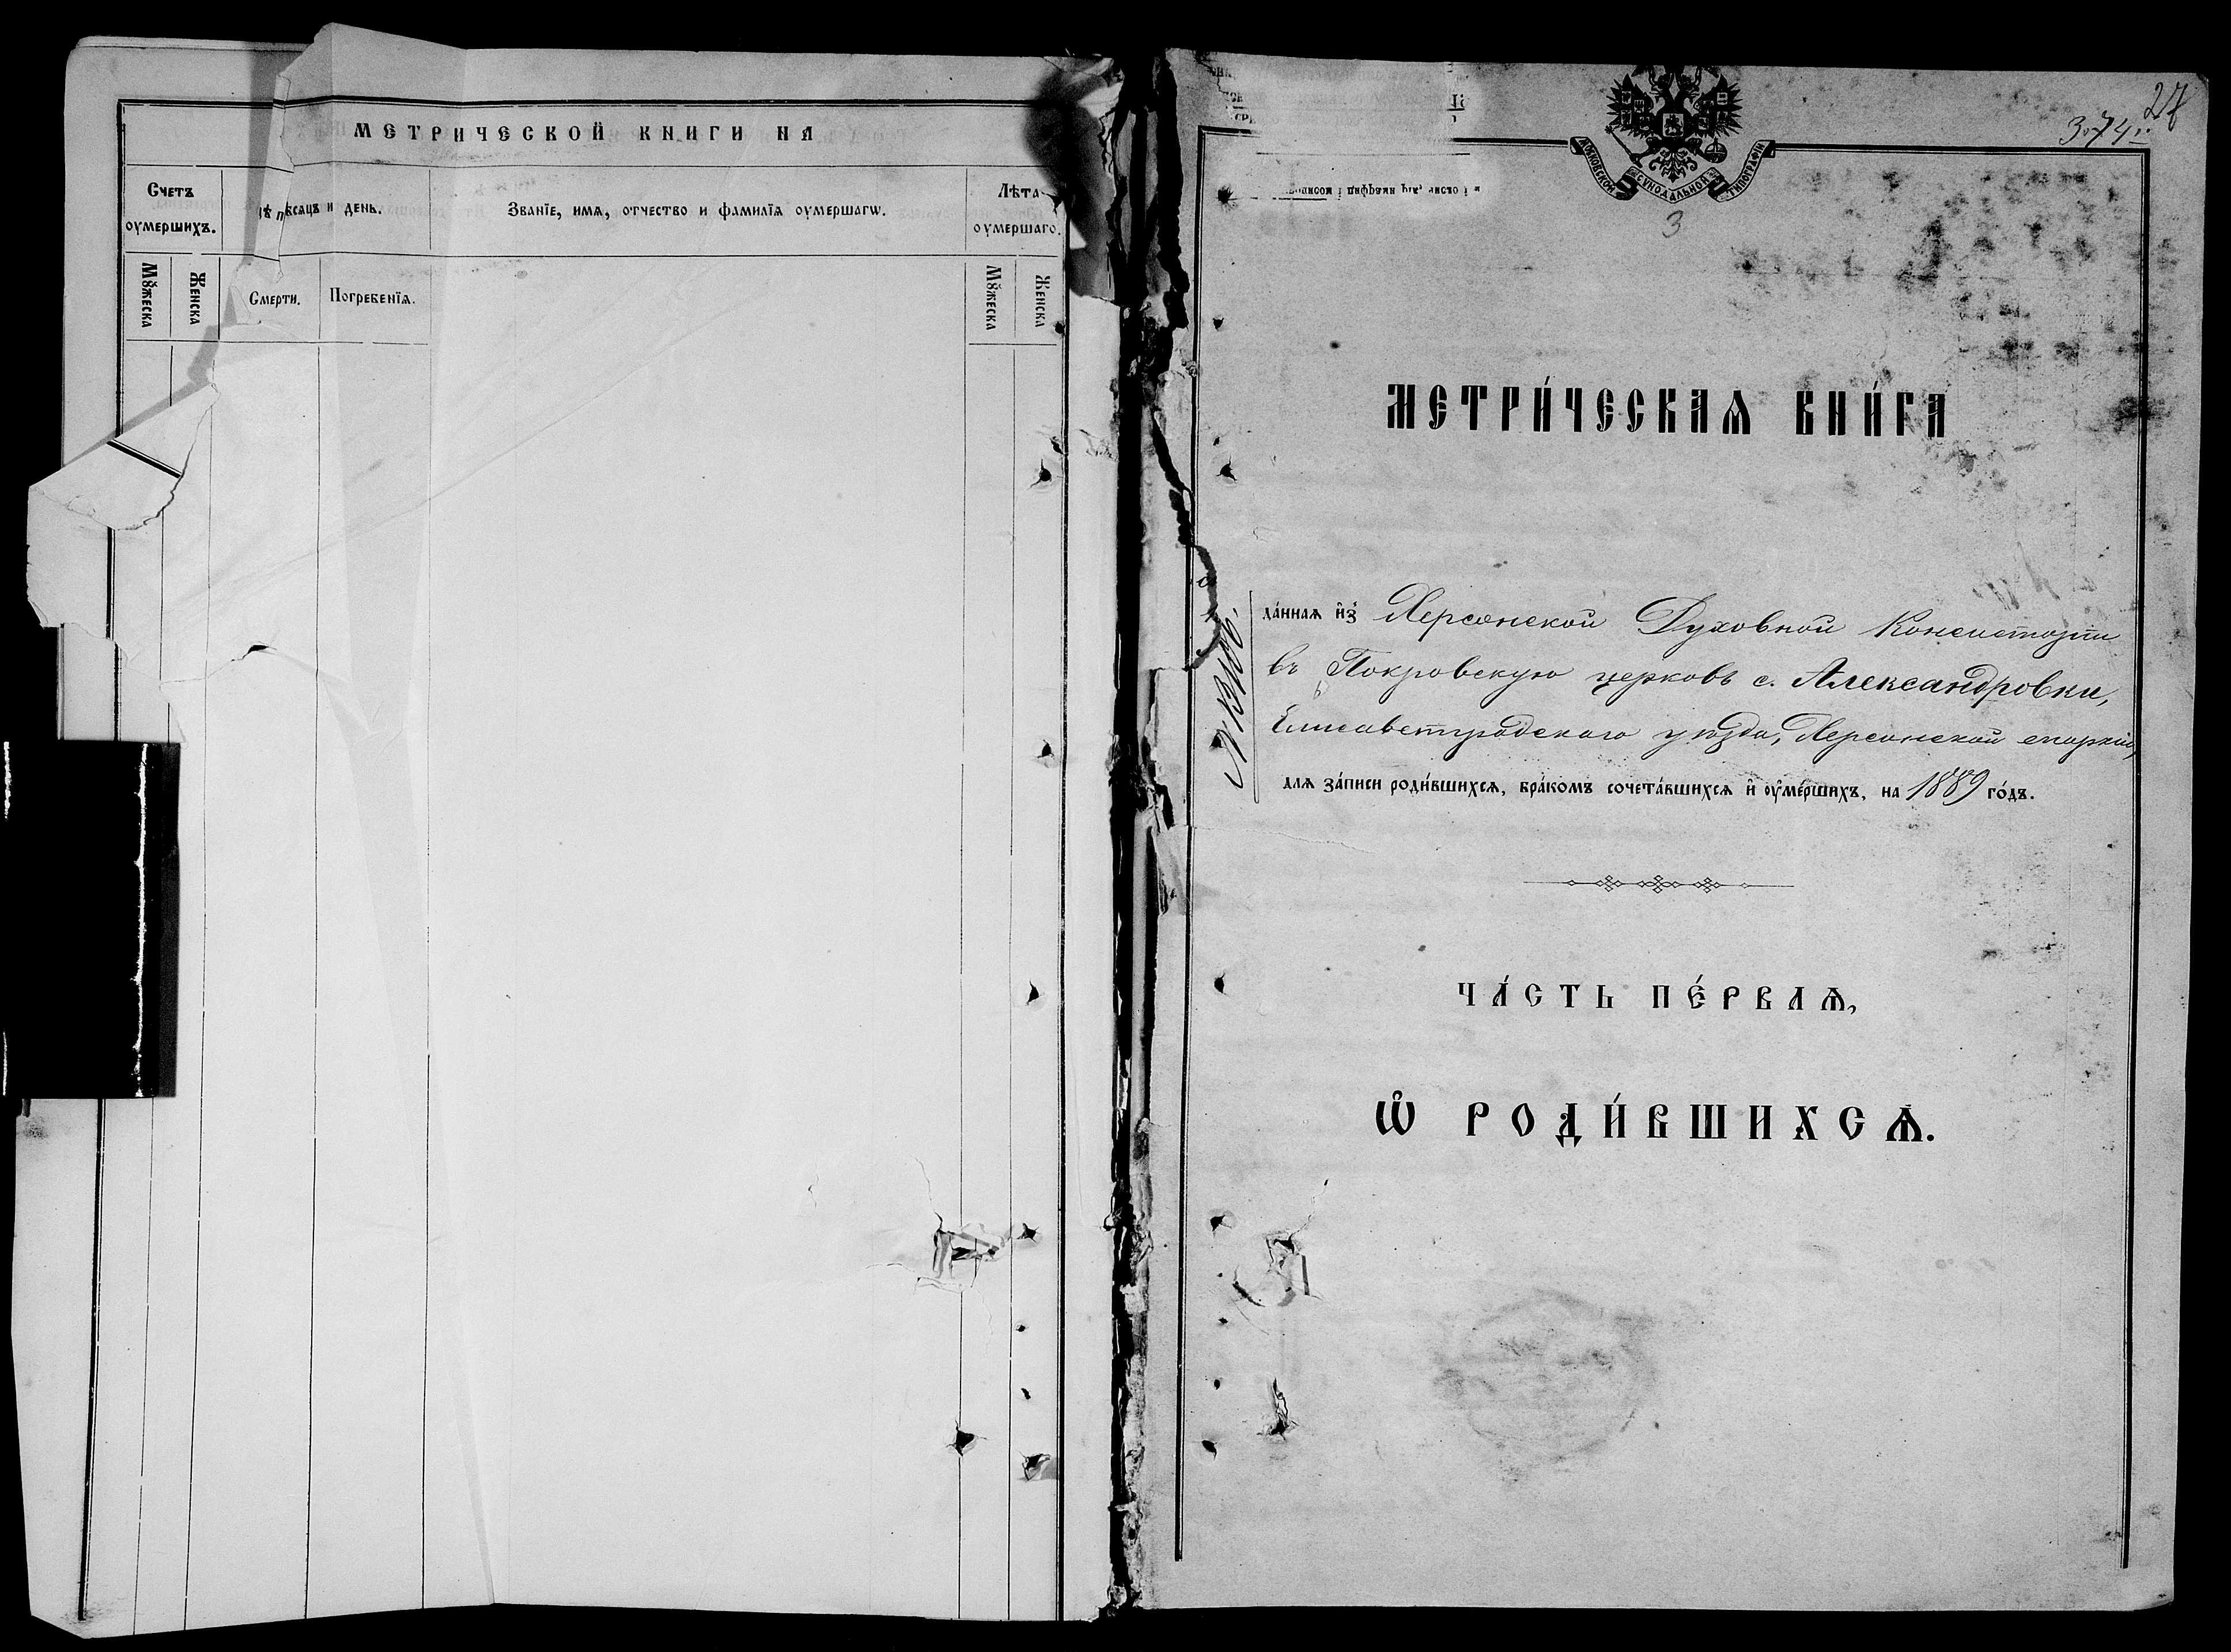 МЕТРИЧЕСКОЙ КНИГИ НА
Счетъ оумершихъ.
и день.
Званїе, имѧ, отчество и фамилїѧ оумершагѡ.
Лѣта оумершаго.
Мꙋжеска
Женска
Смерти.
Погребенїѧ.
Мꙋжеска
Женска
27
374
МОСКОВСКОЙ СѴНОДАЛЬНОЙ ТИПОГРАФІИ
3
МЕТРИ́ЧЕСКАѦ КНИ́ГА
да́ннаѧ и҆з̾ Херсонской Духовной Консисторіи
въ Покровскую церковь с. Александровки,
Елисаветградскаго уѣзда, Херсонской епархіи,
длѧ за́писи роди́вшихсѧ, бра́комъ сочета́вшихсѧ и҆ оу҆ме́ршихъ, на 1889 го́дъ.
ЧА́СТЬ ПЕ́РВАѦ,
Ѡ҆ РОДИ́ВШИХСѦ.